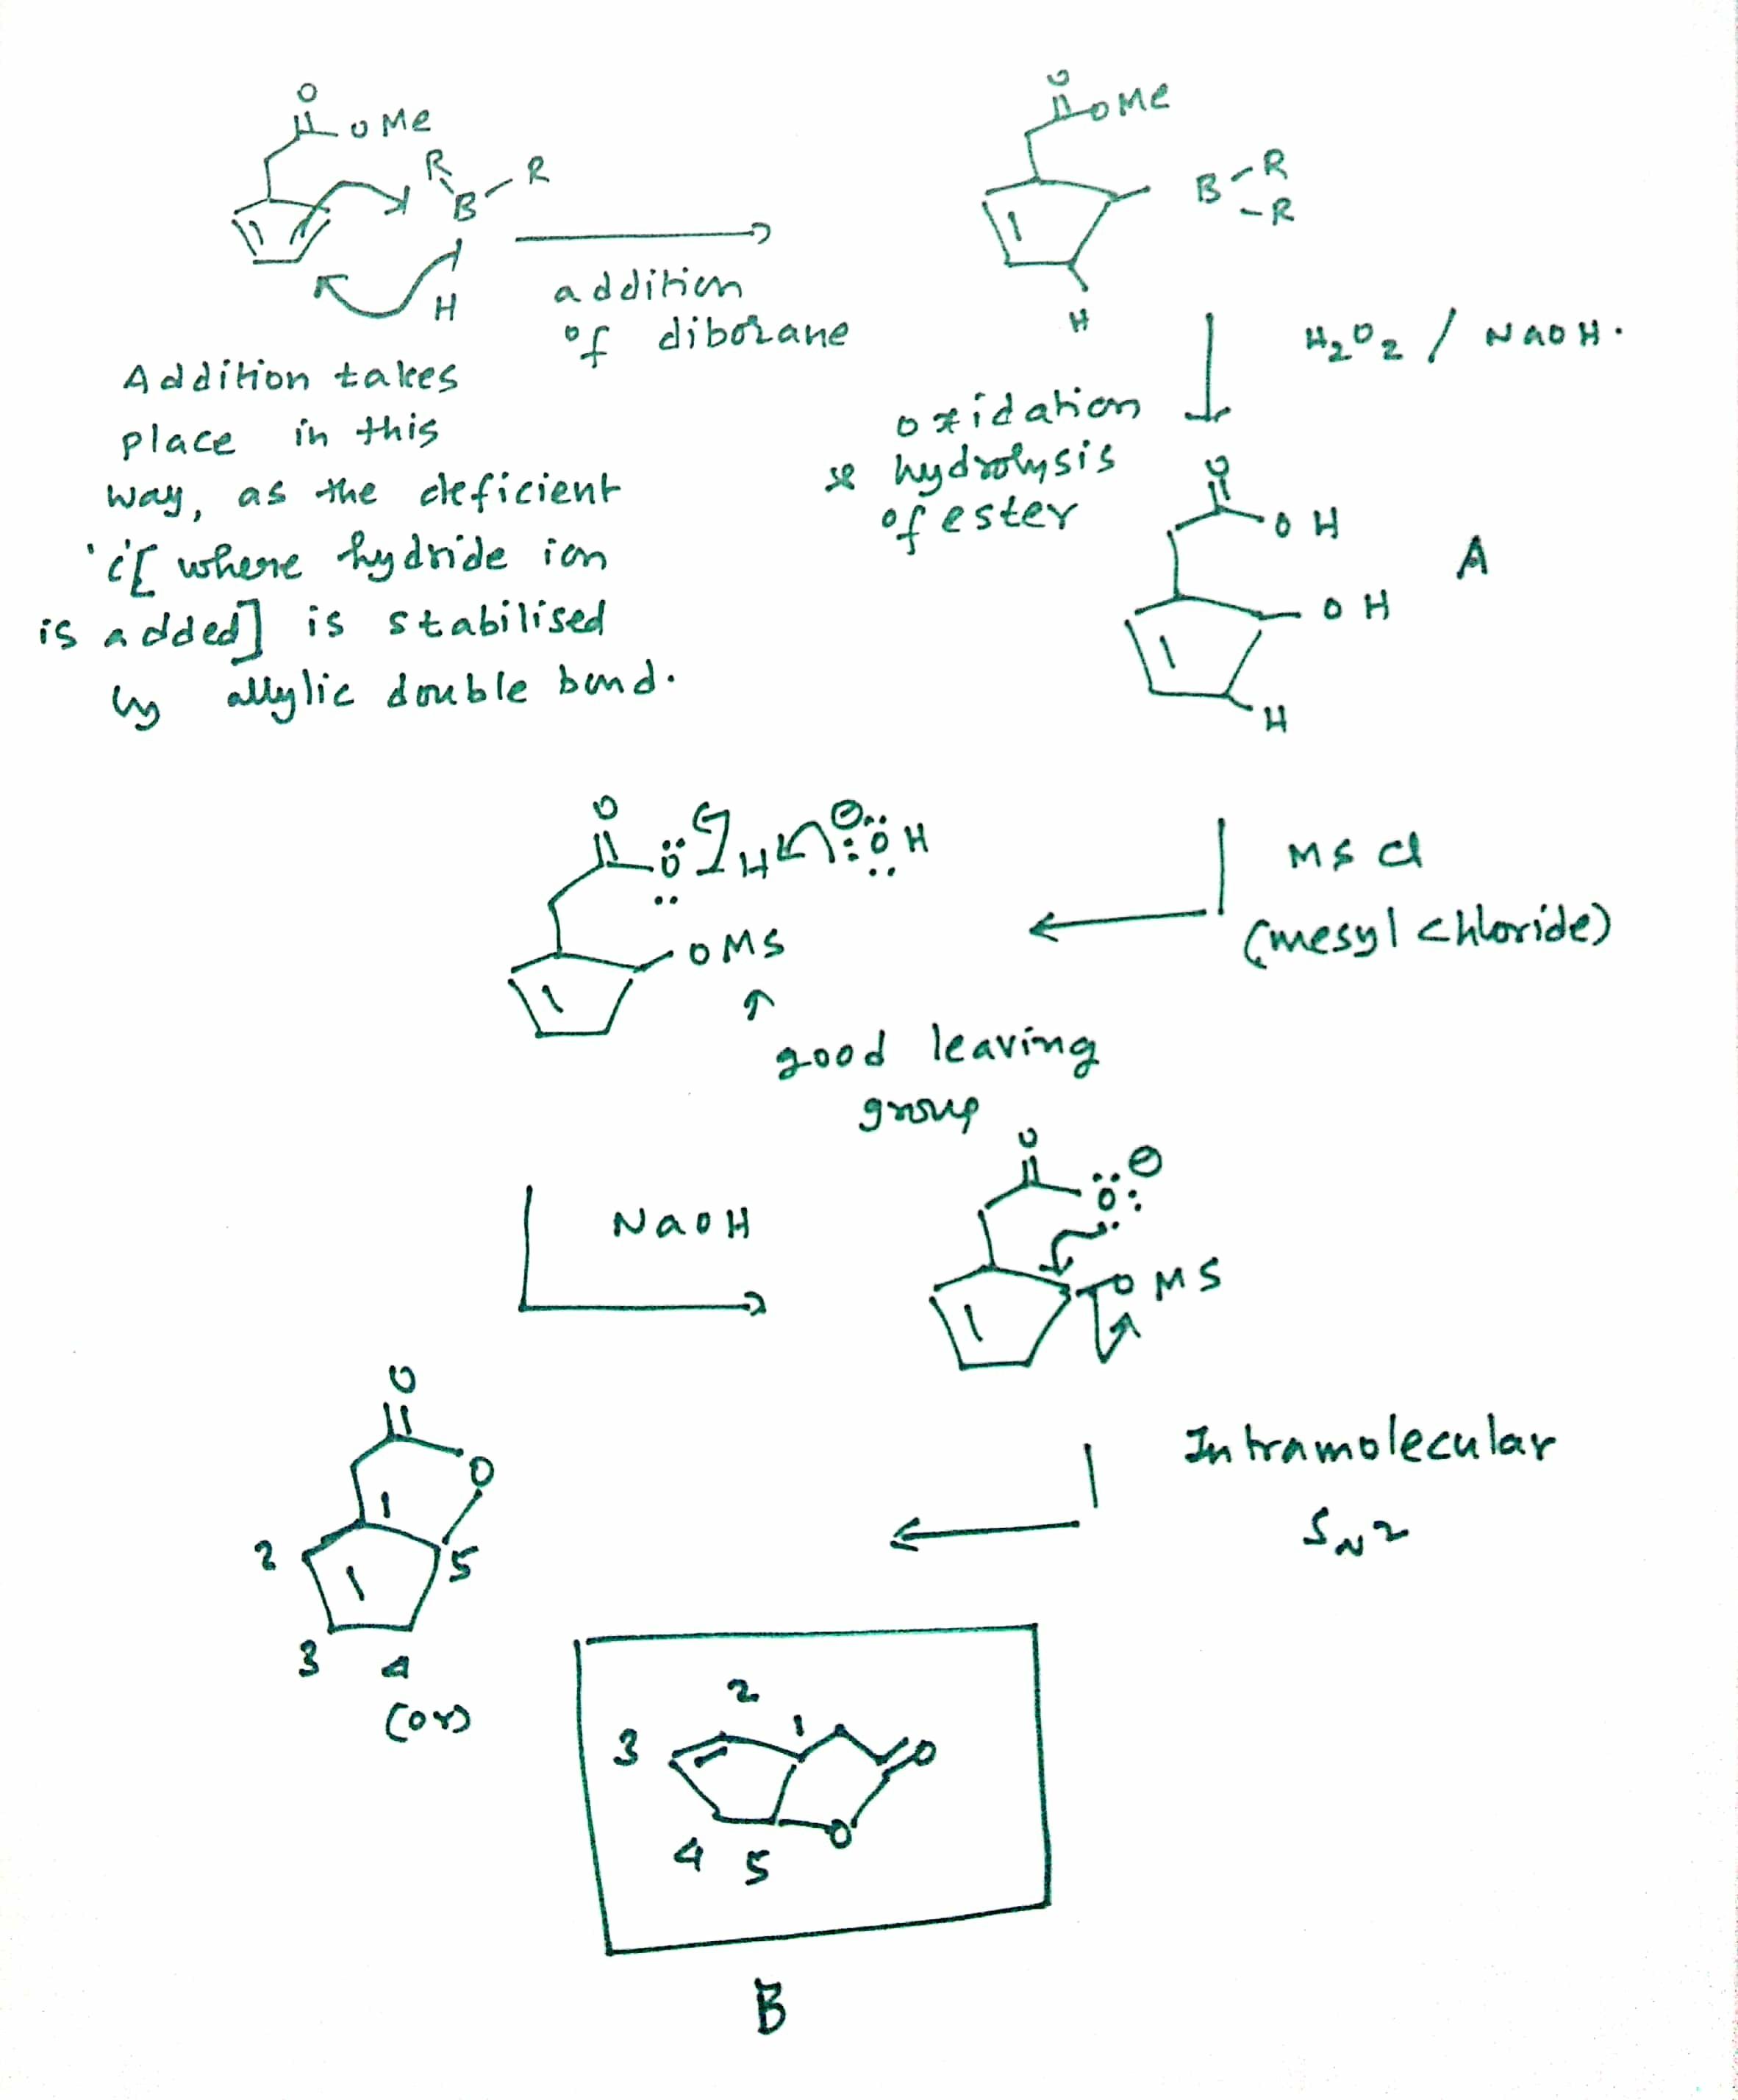 O
O Me
R
R
B
H
addition
of diborane
O
OMe
B
R
R
H
H2O2 / NaOH.
Addition takes
place in this
way, as the deficient
'C'[ where hydride ion
is added] is stabilised
by allylic double bond.
oxidation
& hydrolysis
of ester
O
OH
OH
A
H
MsCl
(mesyl chloride)
O
O H ⊖ OH
OMS
good leaving
group
NaOH
O
⊖
O
OMS
Intramolecular
SN2
O
O
1
2
5
3 4
(or)
2
3 1
O
4 5 O
B